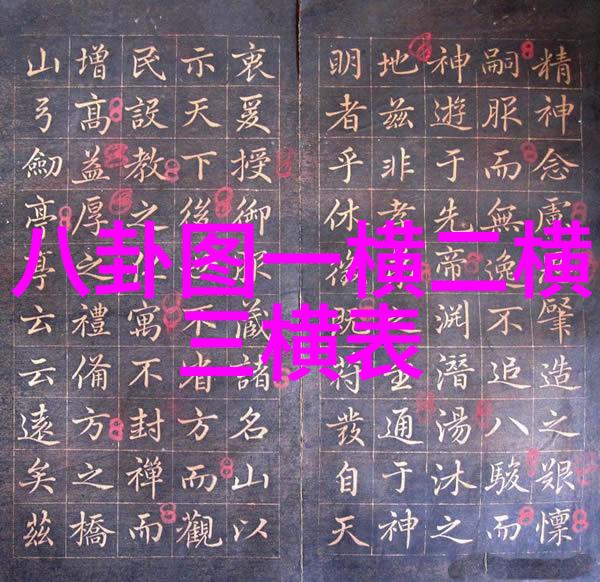 八卦图一横二横
三横表
精神念慮肇造之艱懍
嗣服而無逸不追八駿而
神遊于先帝渊潛湯沐之
地茲非孝之至通于神
明者乎休徵既符發自天
衷爰授御服藏諸名山以
示天下後不省方而觀
民設教之寓不封禪而
增高益厚之禮備方之橋
山弓劒亭亭云云遠矣茲